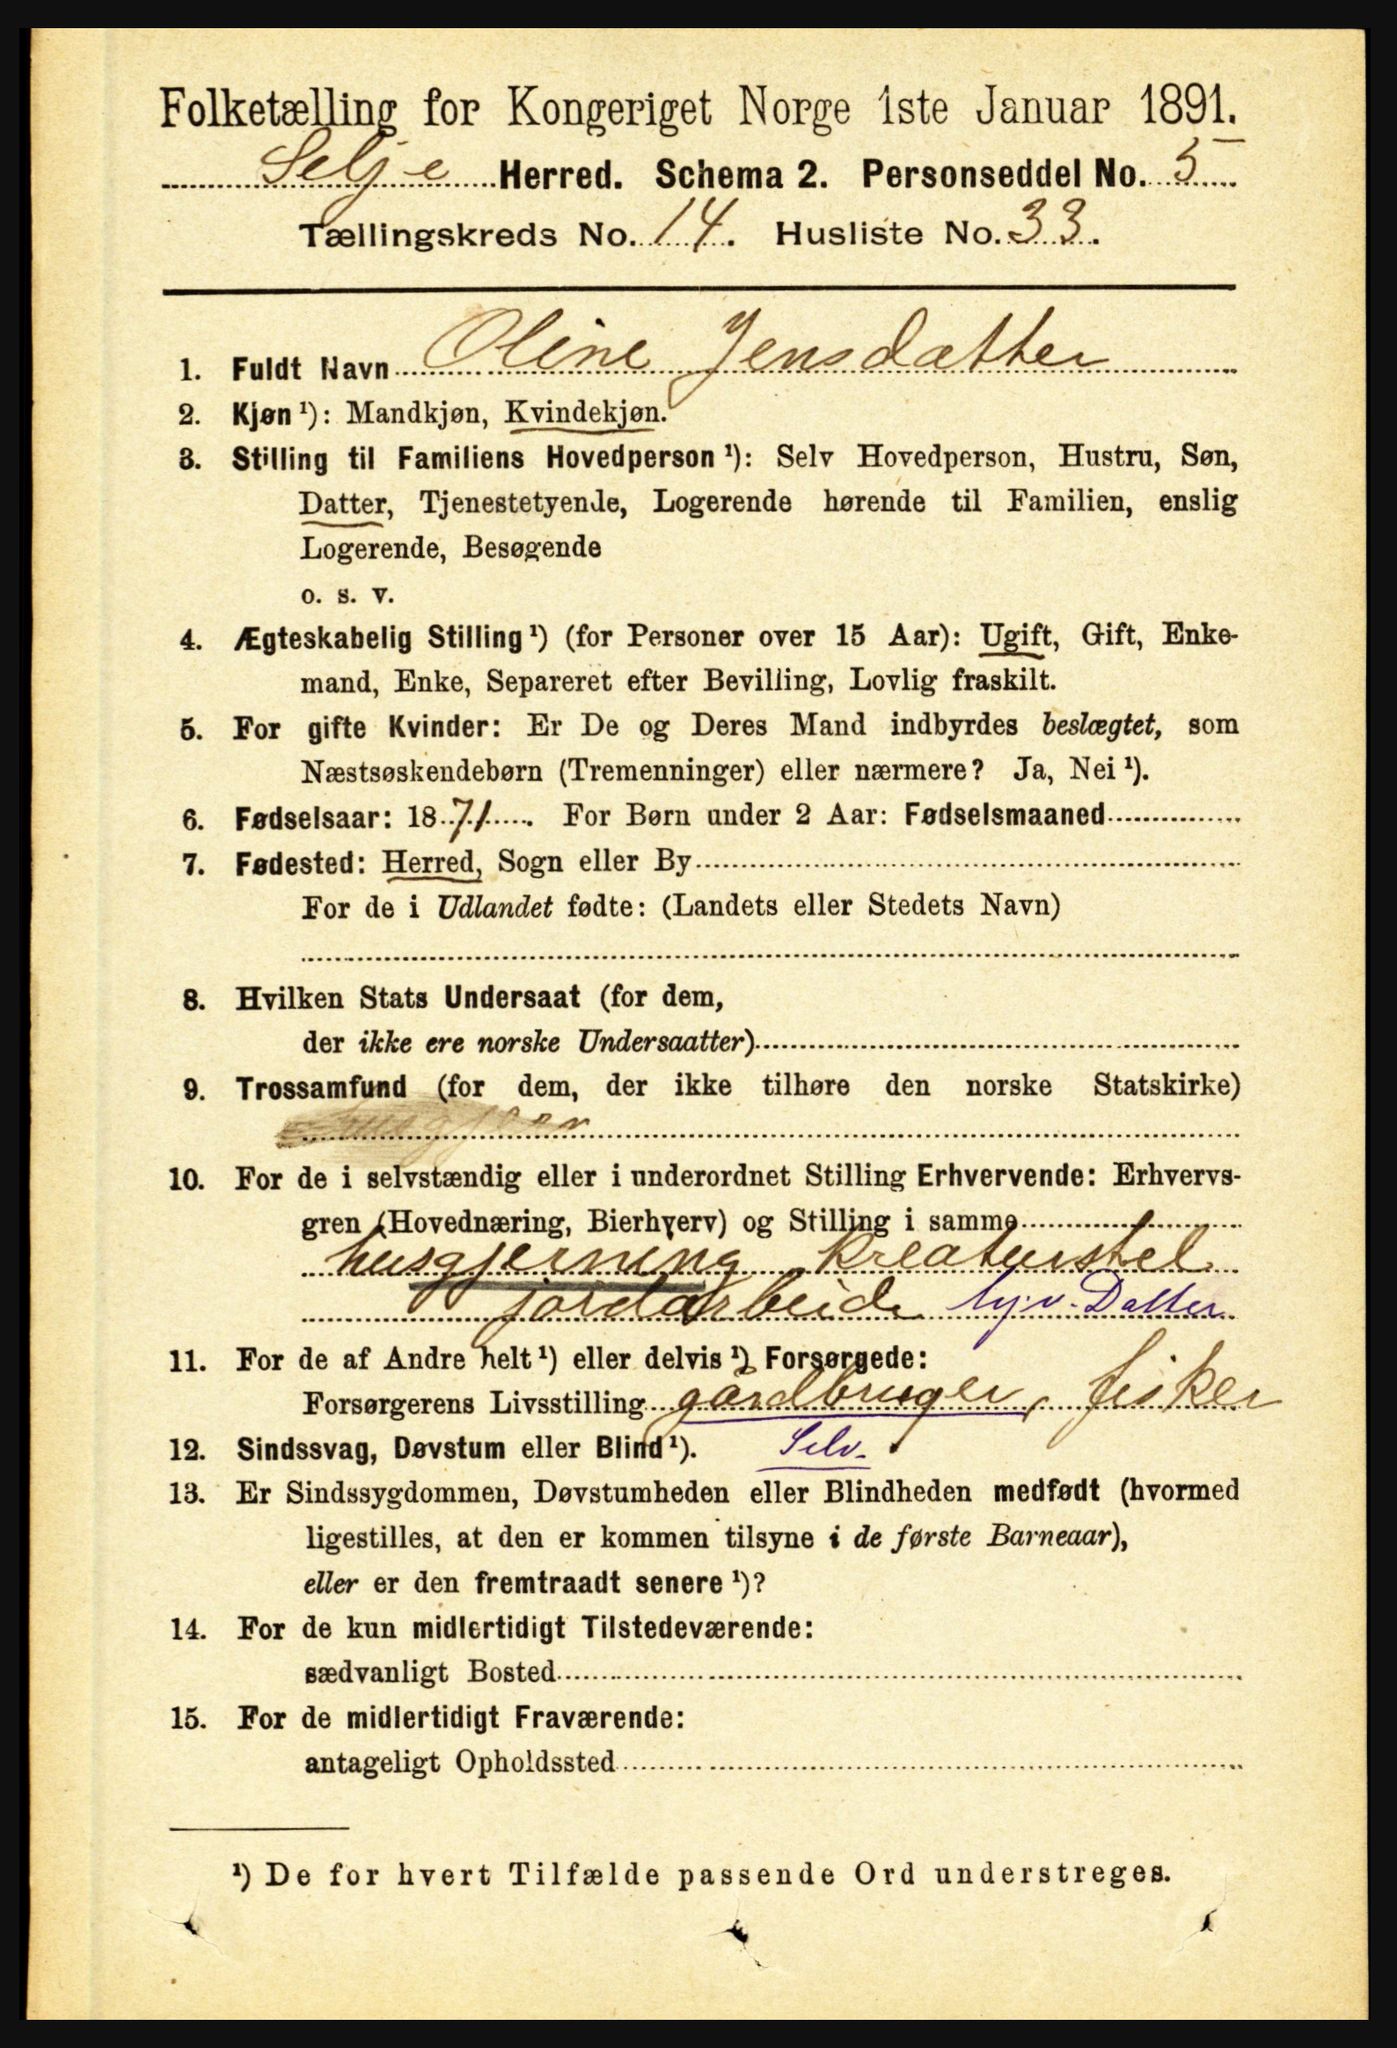 Folketælling for Kongeriget Norge 1ste Januar 1891.
Selje Herred. Schema 2. Personseddel No. 5
Tællingskreds No. 14. Husliste No. 33.
1. Fuldt Navn Oline Jensdatter
2. Kjøn ¹): Mandkjøn, Kvindekjøn.
3. Stilling til Familiens Hovedperson ¹): Selv Hovedperson, Hustru, Søn,
Datter, Tjenestetyende, Logerende hørende til Familien, enslig
Logerende, Besøgende
o. s. v.
4. Ægteskabelig Stilling ¹) (for Personer over 15 Aar): Ugift, Gift, Enke-
mand, Enke, Separeret efter Bevilling, Lovlig fraskilt.
5. For gifte Kvinder: Er De og Deres Mand indbyrdes beslægtet, som
Næstsøskendebørn (Tremenninger) eller nærmere? Ja, Nei ¹).
6. Fødselsaar: 1871. For Børn under 2 Aar: Fødselsmaaned
7. Fødested: Herred, Sogn eller By
For de i Udlandet fødte: (Landets eller Stedets Navn)
8. Hvilken Stats Undersaat (for dem,
der ikke ere norske Undersaatter)
9. Trossamfund (for dem, der ikke tilhøre den norske Statskirke)
husgjer
10. For de i selvstændig eller i underordnet Stilling Erhvervende: Erhvervs-
gren (Hovednæring, Bierhverv) og Stilling i samme
husgjerning kreaturstel
jordarbeide hj. v. Datter
11. For de af Andre helt ¹) eller delvis ¹) Forsørgede:
Forsørgerens Livsstilling gårdbruger, fisker
12. Sindssvag, Døvstum eller Blind ¹). Selv.
13. Er Sindssygdommen, Døvstumheden eller Blindheden medfødt (hvormed
ligestilles, at den er kommen tilsyne i de første Barneaar),
eller er den fremtraadt senere ¹)?
14. For de kun midlertidigt Tilstedeværende:
sædvanligt Bosted
15. For de midlertidigt Fraværende:
antageligt Opholdssted
¹) De for hvert Tilfælde passende Ord understreges.